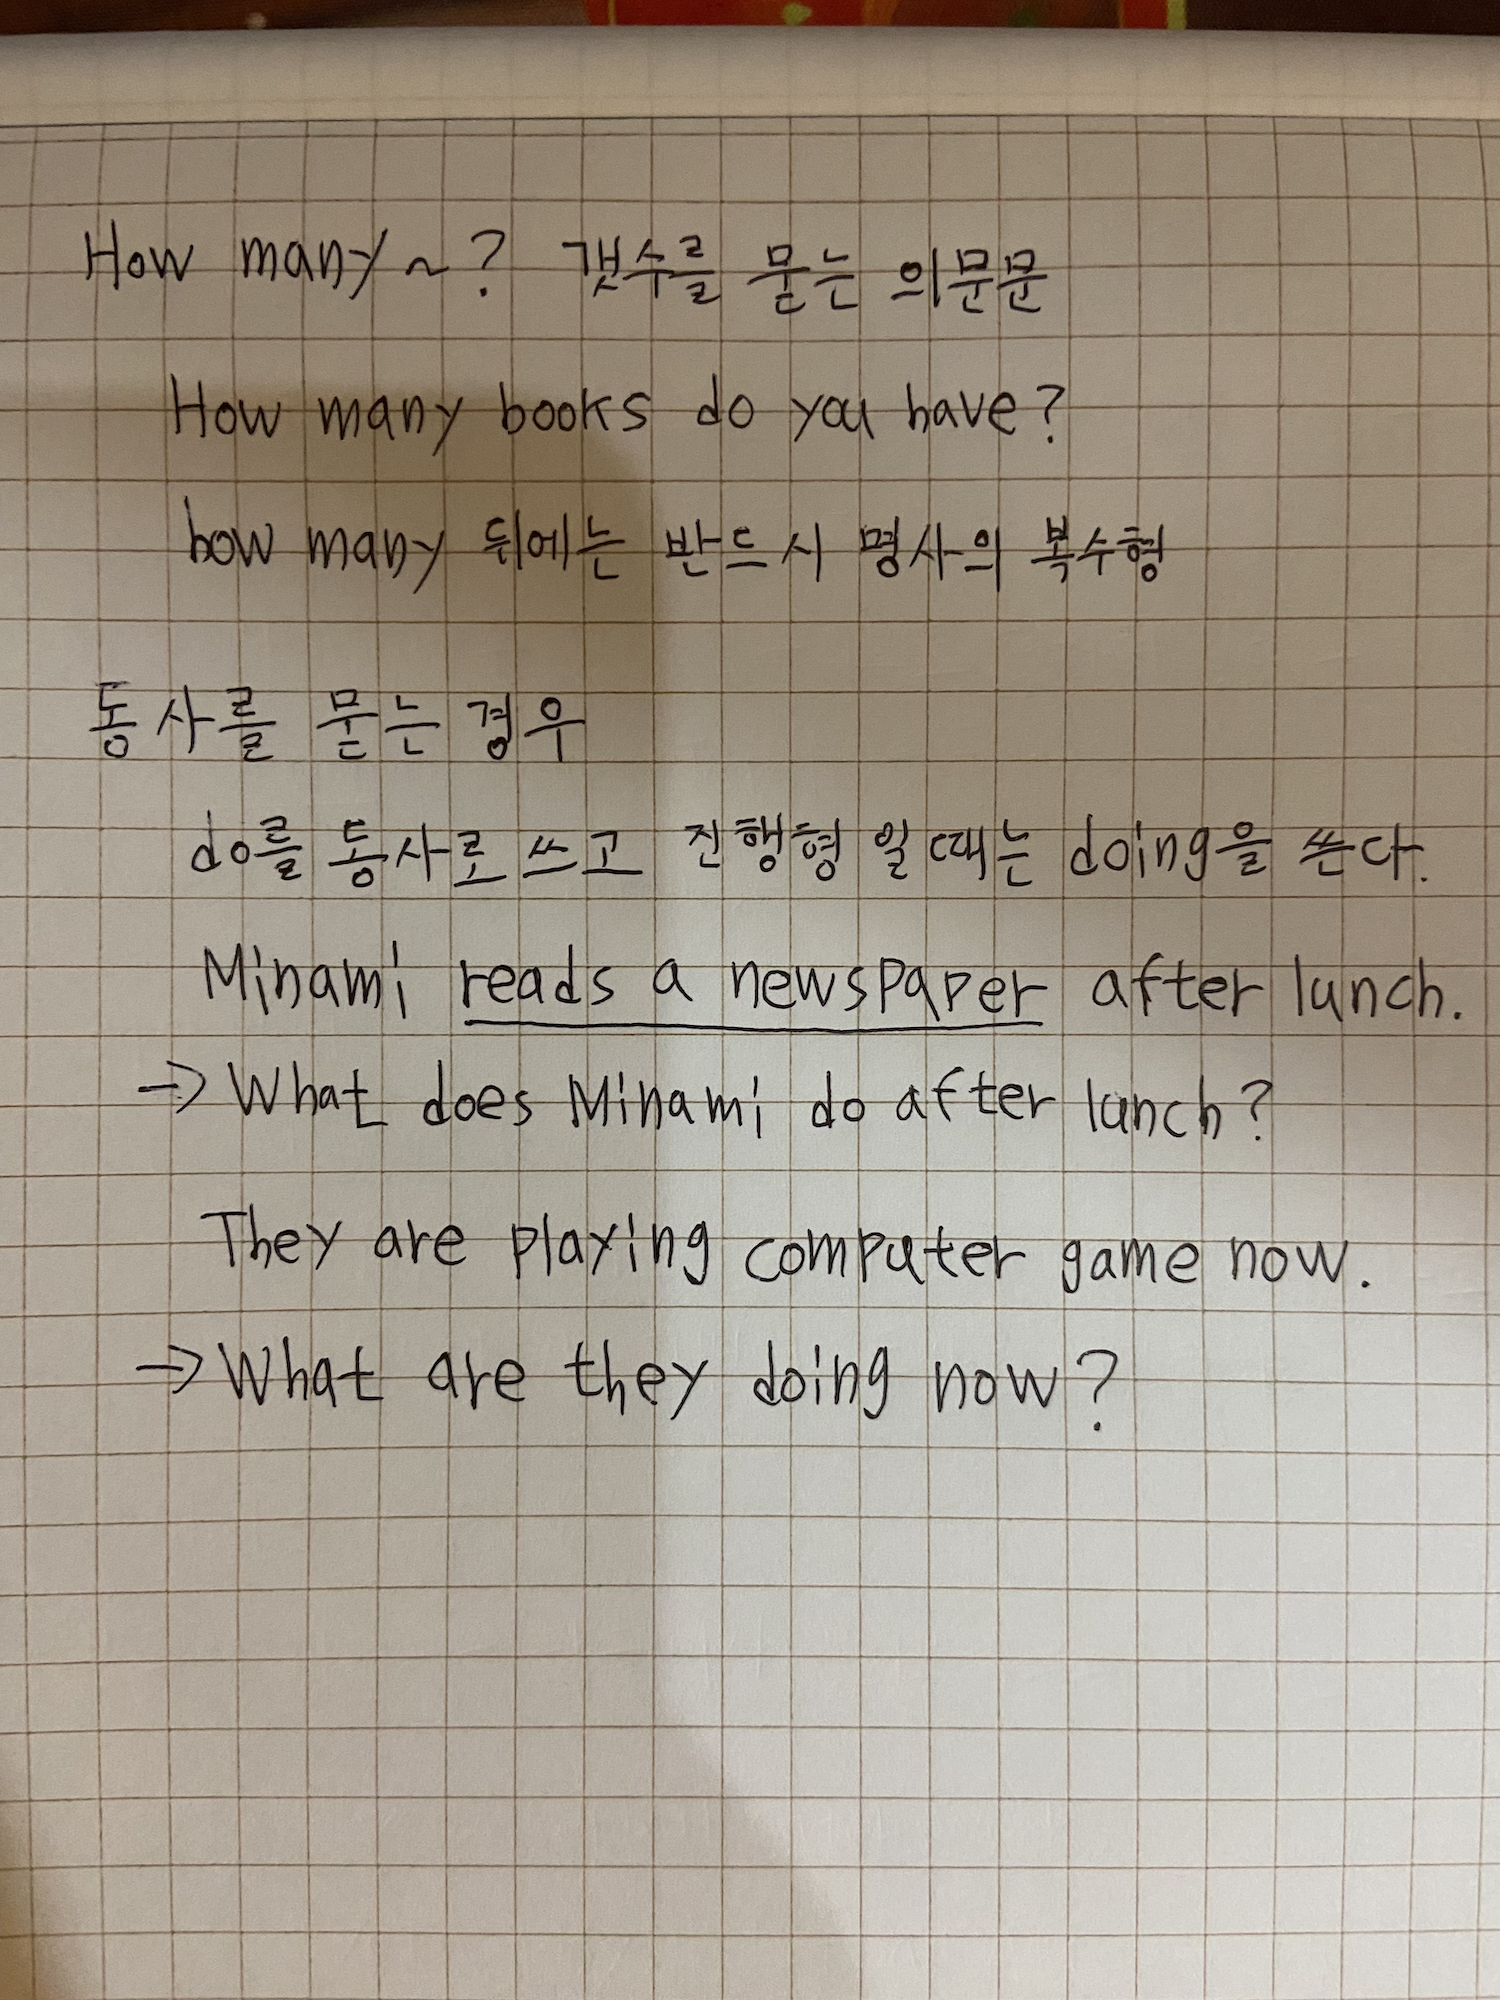 How many ~ ? 갯수를 묻는 의문문
How many books do you have?
how many 뒤에는 반드시 명사의 복수형
동사를 묻는 경우
do를 동사로 쓰고 진행형 일때는 doing을 쓴다.
Minami reads a newspaper after lunch.
→ What does Minami do after lunch?
They are playing computer game now.
→ What are they doing now?